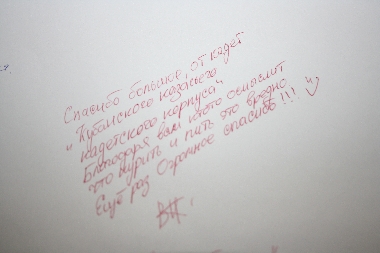 Спасибо большое, от кадет
"Кубанского казачьего
кадетского корпуса"
Благодаря вам кто-то осмыслит
что курить и пить это вредно
Ещё раз Огромное спасибо!!!